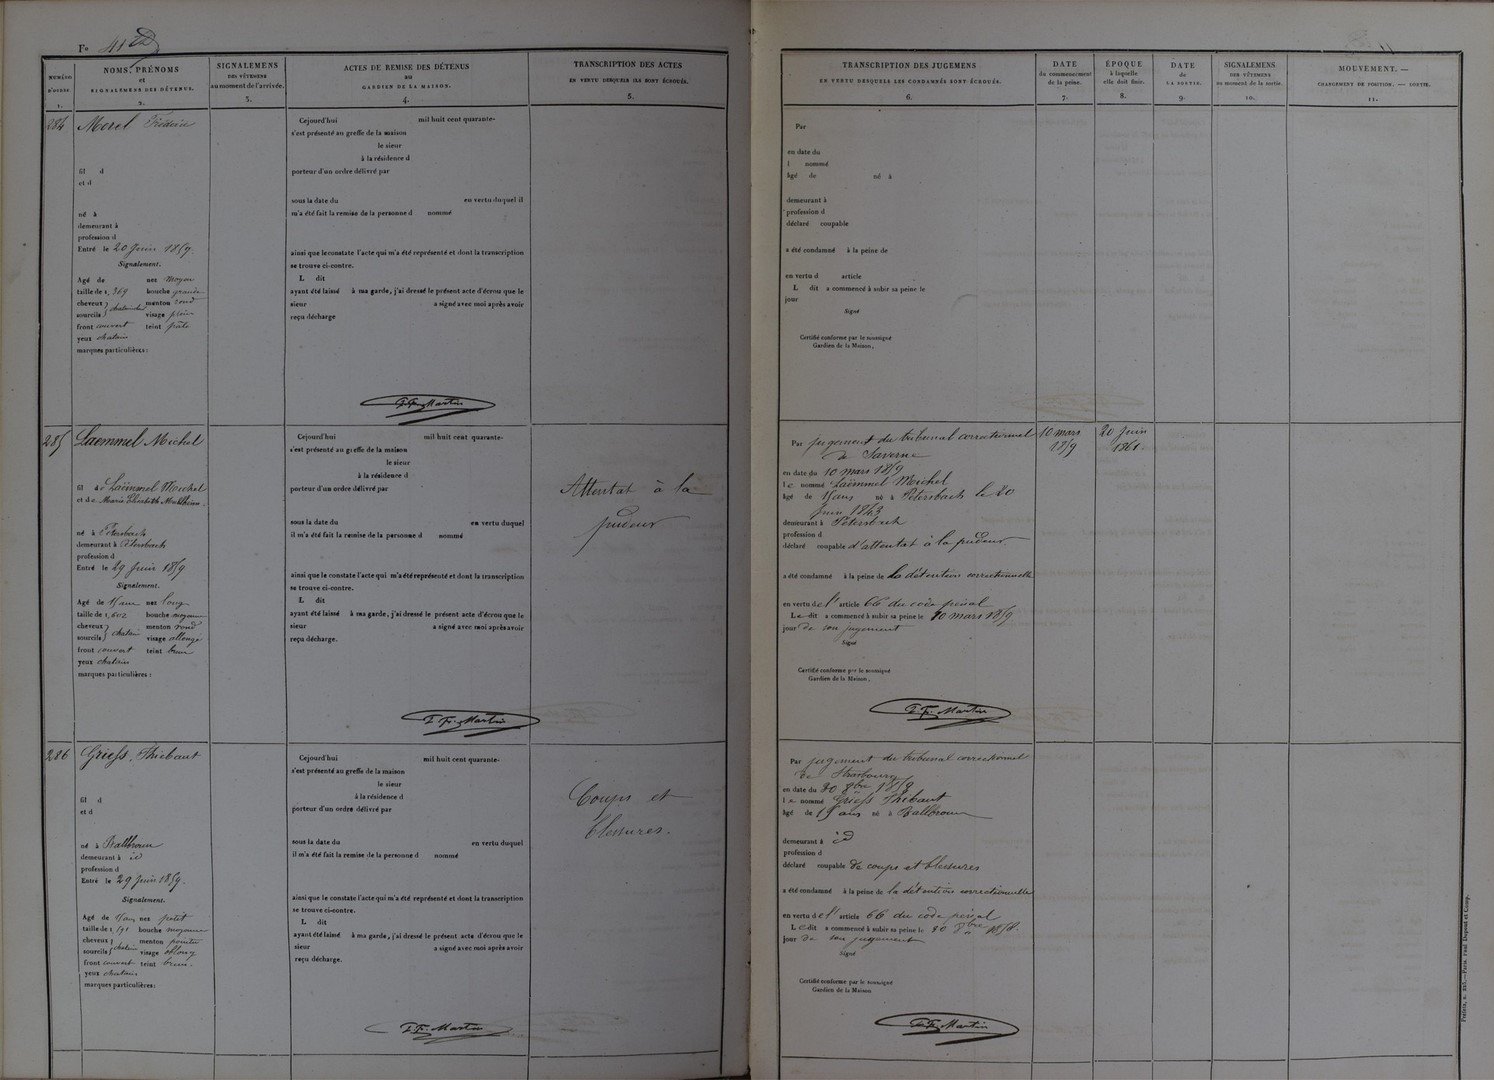 Fº 41
NUMÉRO D'ORDRE 1.
NOMS, PRÉNOMS et SIGNALEMENS DES DÉTENUS. 2.
SIGNALEMENS DES VÊTEMENS au moment de l'arrivée. 3.
ACTES DE REMISE DES DÉTENUS AU GARDIEN DE LA MAISON. 4.
TRANSCRIPTION DES ACTES EN VERTU DESQUELS ILS SONT ÉCROUÉS. 5.
TRANSCRIPTION DES JUGEMENS EN VERTU DESQUELS LES CONDAMNÉS SONT ÉCROUÉS. 6.
DATE du commencement de la peine. 7.
ÉPOQUE à laquelle elle doit finir. 8.
DATE de LA SORTIE. 9.
SIGNALEMENS DES VÊTEMENS au moment de la sortie. 10.
MOUVEMENT. — CHANGEMENT DE POSITION. — SORTIE. 11.
284 Morel Frédéric
fil d
et d
né à
demeurant à
profession d
Entré le 20 Juin 1859.
Signalement.
Agé de nez moyen
taille de 1, 369 bouche grande
cheveux menton rond
sourcils visage plein
front couvert teint
yeux chatain
marques particulières :
Cejourd'hui mil huit cent quarante-
s'est présenté au greffe de la maison
le sieur
à la résidence d
porteur d'un ordre délivré par
sous la date du en vertu duquel il
m'a été fait la remise de la personne d nommé
ainsi que le constate l'acte qui m'a été représenté et dont la transcription
se trouve ci-contre.
L dit
ayant été laissé à ma garde, j'ai dressé le présent acte d'écrou que le
sieur a signé avec moi après avoir
reçu décharge
Martin
Par
en date du
l nommé
âgé de né à
demeurant à
profession d
déclaré coupable
a été condamné à la peine de
en vertu d article
L dit a commencé à subir sa peine le
jour
Signé
Certifié conforme par le soussigné
Gardien de la Maison,
285 Laemmel Michel
fil de Laëmmel Michel
et de Marie Elisabeth
né à Petersbach
demeurant à Petersbach
profession d
Entré le 29 Juin 1859
Signalement.
Agé de 15 ans nez long
taille de 1, 602 bouche moyenne
cheveux menton rond
sourcils chatain visage allongé
front couvert teint brun
yeux chatain
marques particulières :
Cejourd'hui mil huit cent quarante-
s'est présenté au greffe de la maison
le sieur
à la résidence d
porteur d'un ordre délivré par
sous la date du en vertu duquel
il m'a été fait la remise de la personne d nommé
ainsi que le constate l'acte qui m'a été représenté et dont la transcription
se trouve ci-contre.
L dit
ayant été laissé à ma garde, j'ai dressé le présent acte d'écrou que le
sieur a signé avec moi après avoir
reçu décharge.
Martin
Attentat à la
pudeur
Par jugement du tribunal correctionnel
de Saverne
en date du 10 mars 1859
le nommé Laëmmel Michel
âgé de 15 ans né à Petersbach le 20
Juin 1843
demeurant à Petersbach
profession d
déclaré coupable d'attentat à la pudeur
a été condamné à la peine de la détention correctionnelle
en vertu de l' article 66 du code pénal
Le dit a commencé à subir sa peine le 10 mars 1859
jour de son jugement
Signé
Certifié conforme par le soussigné
Gardien de la Maison,
Martin
10 mars
1859
20 Juin
1861.
286 Griess, Thiebaut
fil d
et d
né à Balbronn
demeurant à id
profession d
Entré le 29 Juin 1859.
Signalement.
Agé de nez petit
taille de 1, 591 bouche moyenne
cheveux menton pointu
sourcils chatain visage oblong
front couvert teint brun.
yeux chatain
marques particulières :
Cejourd'hui mil huit cent quarante-
s'est présenté au greffe de la maison
le sieur
à la résidence d
porteur d'un ordre délivré par
sous la date du en vertu duquel
il m'a été fait la remise de la personne d nommé
ainsi que le constate l'acte qui m'a été représenté et dont la transcription
se trouve ci-contre.
L dit
ayant été laissé à ma garde, j'ai dressé le présent acte d'écrou que le
sieur a signé avec moi après avoir
reçu décharge.
Martin
Coups et
blessures.
Par jugement du tribunal correctionnel
de Strasbourg
en date du
le nommé Griess Thiébaut
âgé de ans né à Balbronn
demeurant à id
profession d
déclaré coupable de coups et blessures
a été condamné à la peine de la détention correctionnelle
en vertu de l' article 66 du code pénal
Le dit a commencé à subir sa peine le
jour de son jugement
Signé
Certifié conforme par le soussigné
Gardien de la Maison
Martin